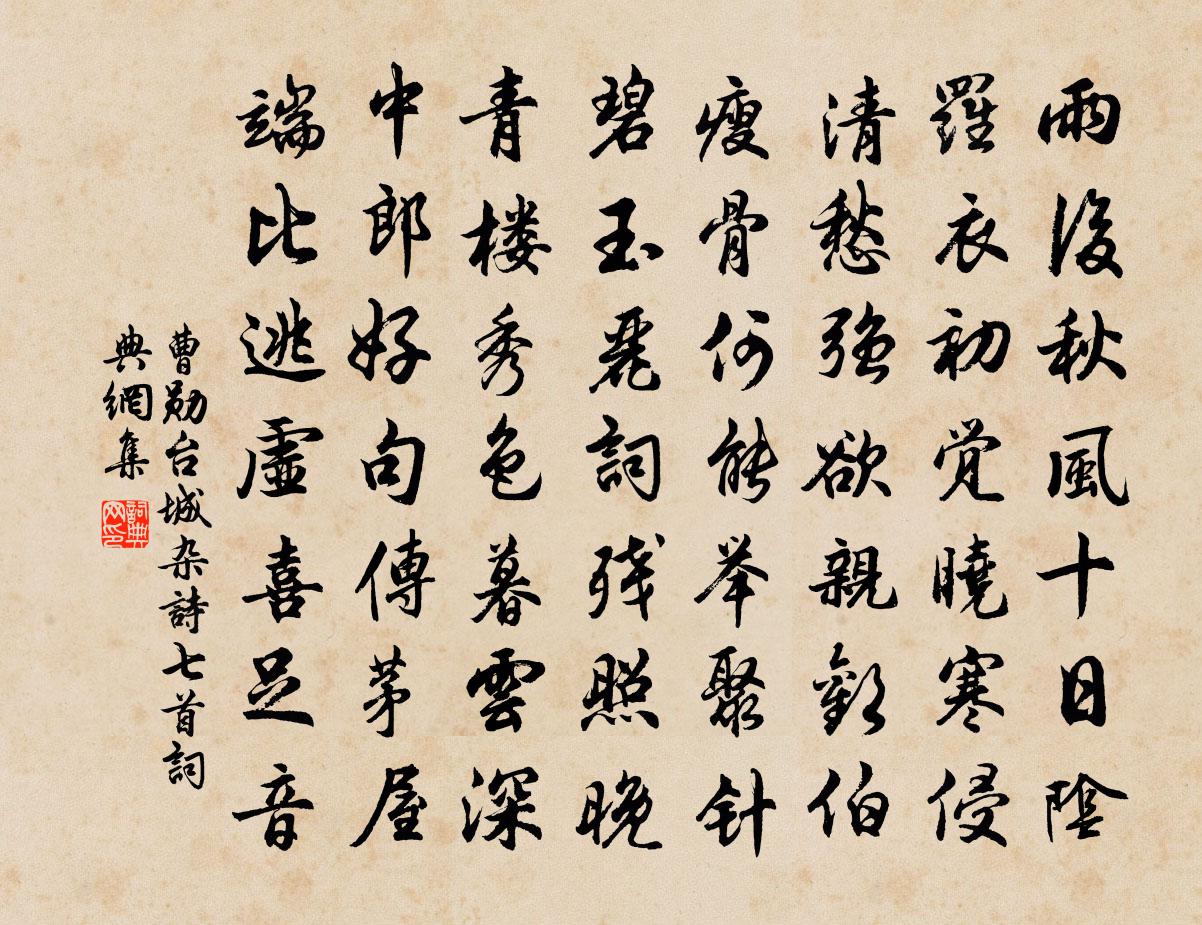 雨後秋風十日陰
羅衣初覚曉寒侵
清愁强欲親歡伯
瘦骨何能举聚针
碧玉麗詞残照晚
青楼秀色暮雲深
中郎好句傳茅屋
端比逃虛喜足音
曹勋台城杂詩七首詞
典網集
詞典
网印